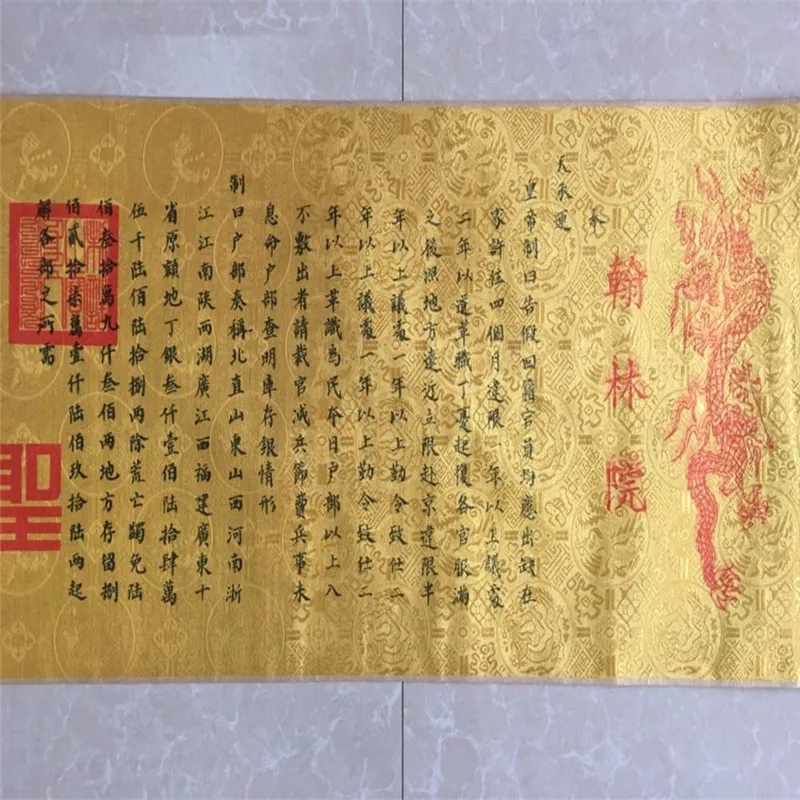 翰林院
奉
天承運
皇帝制曰告假回籍官員均應出缺在
家許拄四個月違限一年以上議處
二年以道革職丁憂起復各官服滿
之後照地方遠近立限赴京違限半
年以上議處一年以上勤令致仕二
年以上議處一年以上勤令致仕二
年以上革職為民本日户部以上八
不敷出者請裁官减兵節費兵事未
息命户部查明庫存銀情形
制曰户部奏稱北直山東山西河南浙
江江南陕西湖廣江西福建廣東十
省原額地丁銀叁仟壹佰陸拾肆萬
伍千陸佰陸拾捌两除荒亡蠲免陸
佰叁拾萬九仟叁佰两地方存留捌
佰貳拾柒萬壹仟陸佰玖拾陸两起
解各部之所需
聖